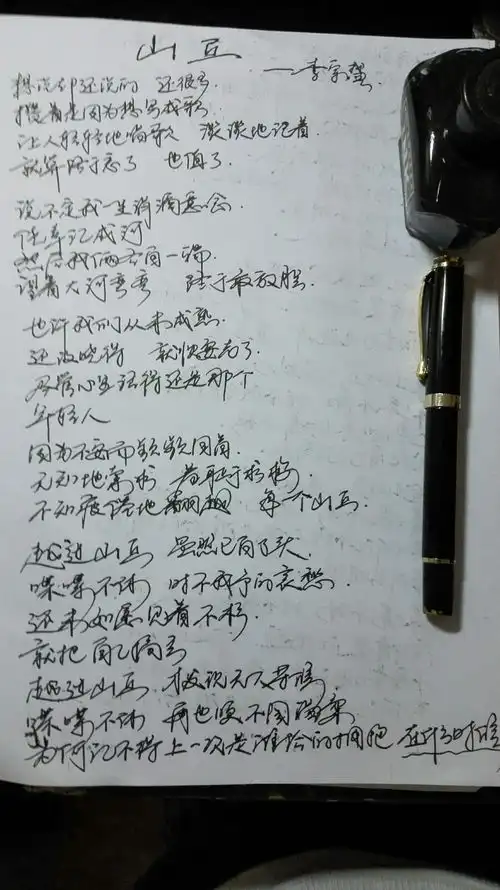 山丘
——李宗盛
想说却还说的 还很多
攒着是因为想写成歌
让人轻轻地唱着 淡淡地记着
就算终于忘了 也值了
说不定我一生涓滴意念
侥幸汇成河
然后我俩各自一端
望着大河弯弯 终于敢放胆
也许我们从未成熟
还没晓得 就快要老了
尽管心里活得还是那个
年轻人
因为不安而频频回首
无知地索求 羞耻于求救
不知疲倦地翻越 每一个山丘
越过山丘 虽然已白了头
喋喋不休 时不我予的哀愁
还未如愿见着不朽
就把自己搞丢
越过山丘 才发现无人等候
喋喋不休 再也唤不回温柔
为何记不得上一次是谁给的拥抱 在什么时候